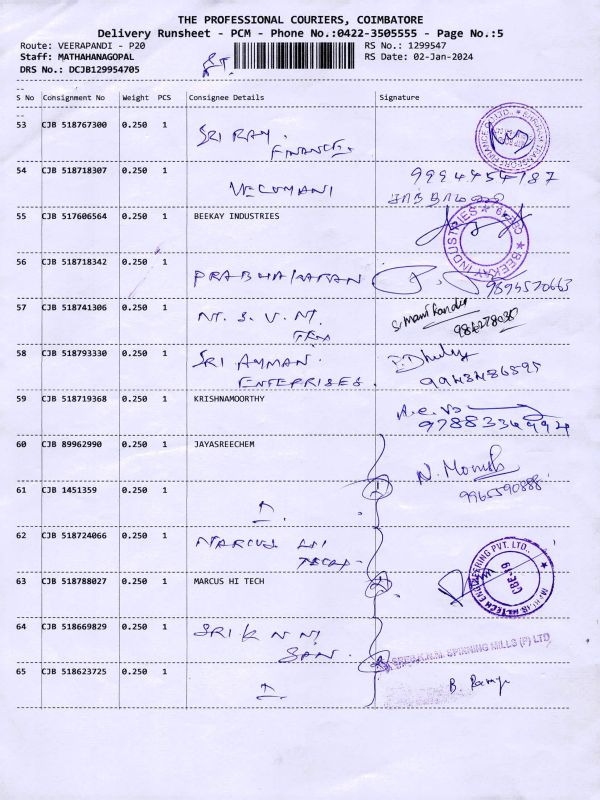 THE PROFESSIONAL COURIERS, COIMBATORE
Delivery Runsheet - PCM - Phone No.:0422-3505555 - Page No.:5
Route: VEERAPANDI - P20 RS No.: 1299547
Staff: MATHAHANAGOPAL RS Date: 02-Jan-2024
DRS No.: DCJB129954705
S No Consignment No Weight PCS Consignee Details Signature
53 CJB 518767300 0.250 1 SRI RAM
FINANCE
54 CJB 518718307 0.250 1 9994454787
55 CJB 517606564 0.250 1 BEEKAY INDUSTRIES
BEEKAY INDUSTRIES
56 CJB 518718342 0.250 1 PRABHAKARAN
57 CJB 518741306 0.250 1 Manikandan
58 CJB 518793330 0.250 1 SRI AMMAN
ENTERPRISES 9943486595
59 CJB 518719368 0.250 1 KRISHNAMOORTHY
60 CJB 89962990 0.250 1 JAYASREECHEM
61 CJB 1451359 0.250 1 9965590888
62 CJB 518724066 0.250 1 MARCUS HI
TECH
63 CJB 518788027 0.250 1 MARCUS HI TECH
CBE-19
64 CJB 518669829 0.250 1 SRI K N N
SPINNING MILLS (P) LTD
65 CJB 518623725 0.250 1